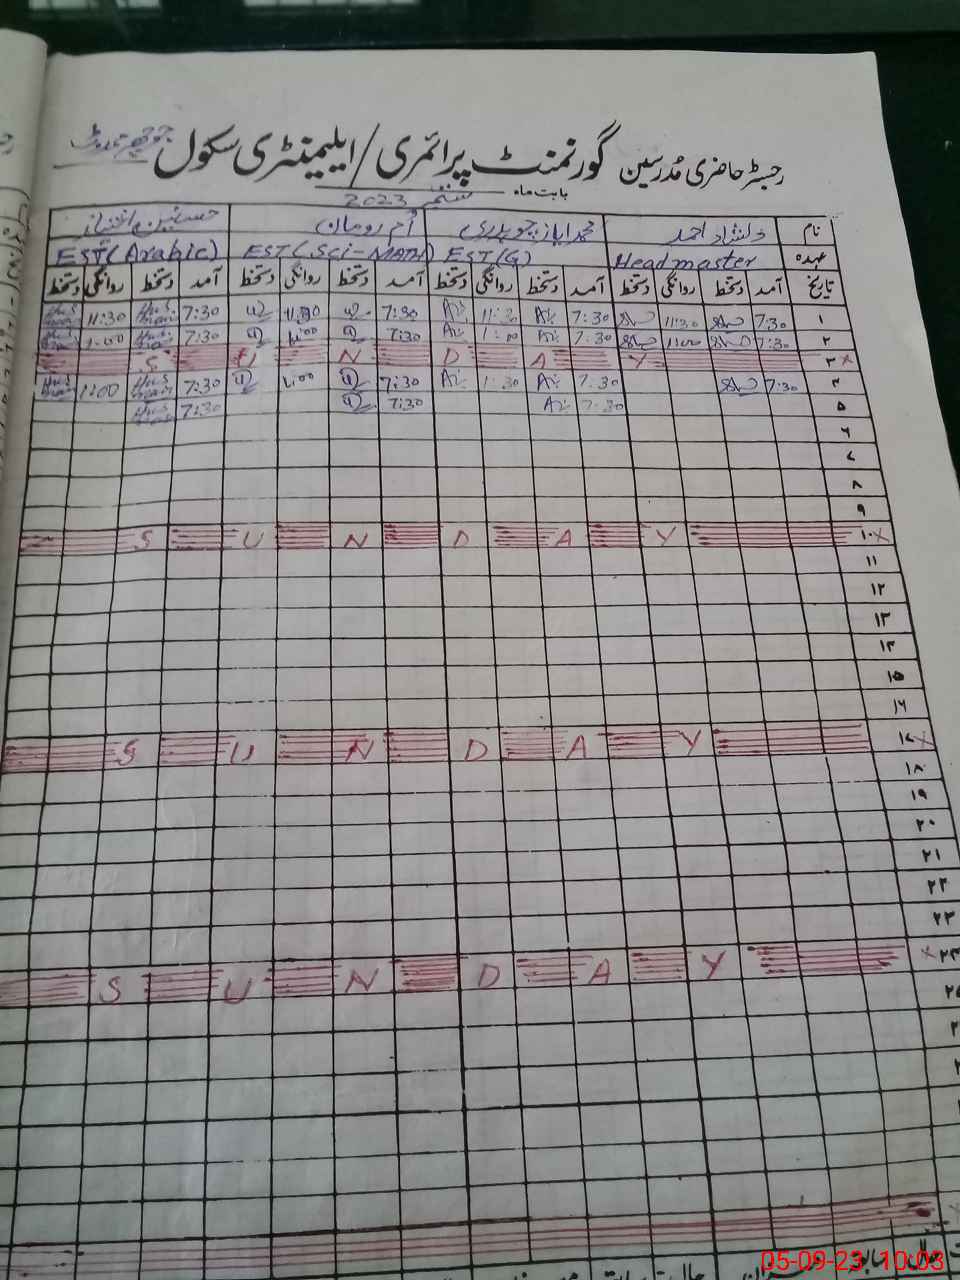 رجسٹر حاضری مُدرسین گورنمنٹ پرائمری / ایلیمنٹری سکول
بابت ماہ ستمبر 2023
نام دلشاد احمد محمد ایاز چوہدری اُم رومان
عہدہ Headmaster EST(G) EST(Sci-Math) EST(Arabic)
تاریخ آمد دستخط روانگی دستخط آمد دستخط روانگی دستخط آمد دستخط روانگی دستخط آمد دستخط روانگی دستخط
۱ 7:30 11:30 7:30 11:30 7:30 11:30 7:30 11:30
۲ 7:30 11:00 7:30 1:00 7:30 1:00 7:30 1:00
۳ x S U N D A Y
۴ 7:30 7:30 1:30 7:30 1:00 7:30 1:00
۵ 7:30 7:30 7:30
۶
۷
۸
۹
۱۰ x S U N D A Y
۱۱
۱۲
۱۳
۱۴
۱۵
۱۶
۱۷ x S U N D A Y
۱۸
۱۹
۲۰
۲۱
۲۲
۲۳
۲۴ x S U N D A Y
۲۵
05-09-23 10:03